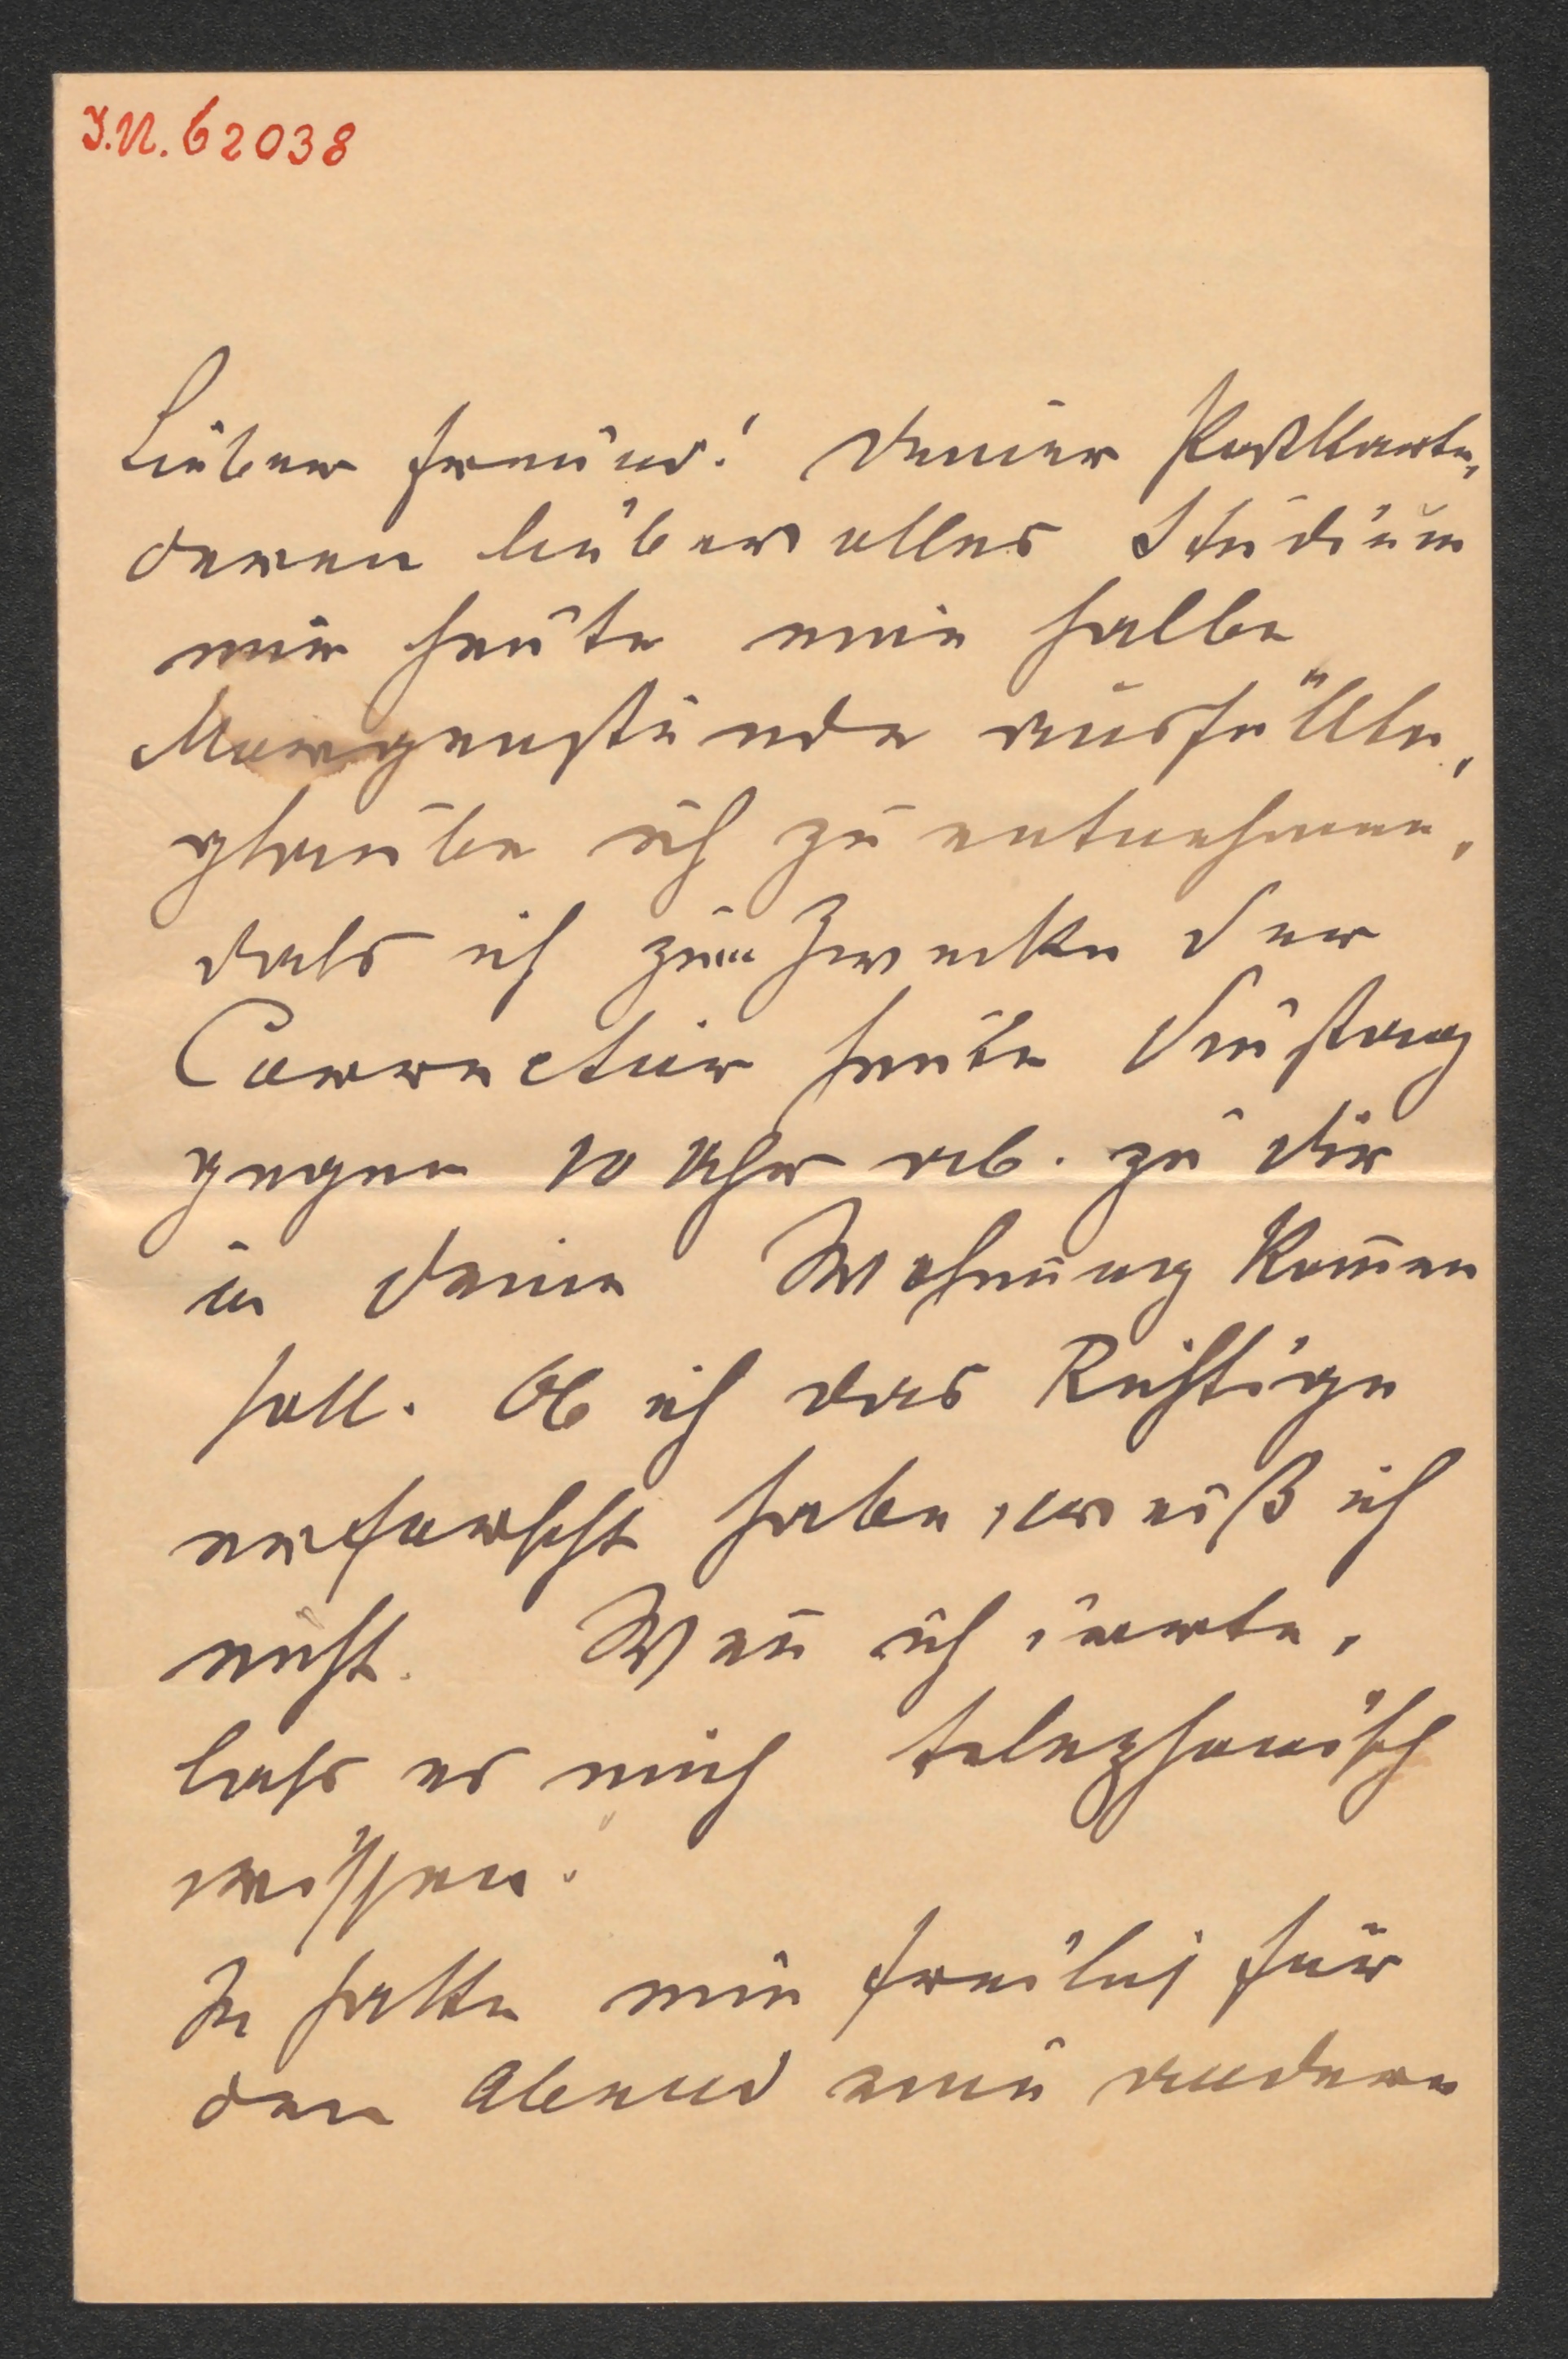 I.N. 62038
Lieber Freund! Deiner Postkarte,
deren liebevolles Studium
mir heute eine halbe
Morgenstunde ausfüllte,
glaube ich zu entnehmen,
dass ich zum Zwecke der
Correctur heute Dienstag
gegen 10 Uhr ab. zu Dir
in Deine Wohnung kom̄en
soll. Ob ich das Richtige
erforscht habe, weiß ich
nicht. Wen̄ ich irrte,
lass es mich telephonisch
wissen.
Ich hatte mir freilich für
den Abend eine andere